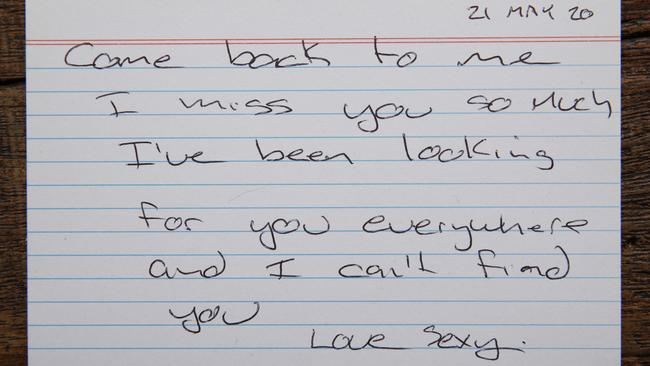 21 MAY 20
Come back to me
I miss you so Much
I've been looking
for you everywhere
and I can't find
you
Love Sexy.